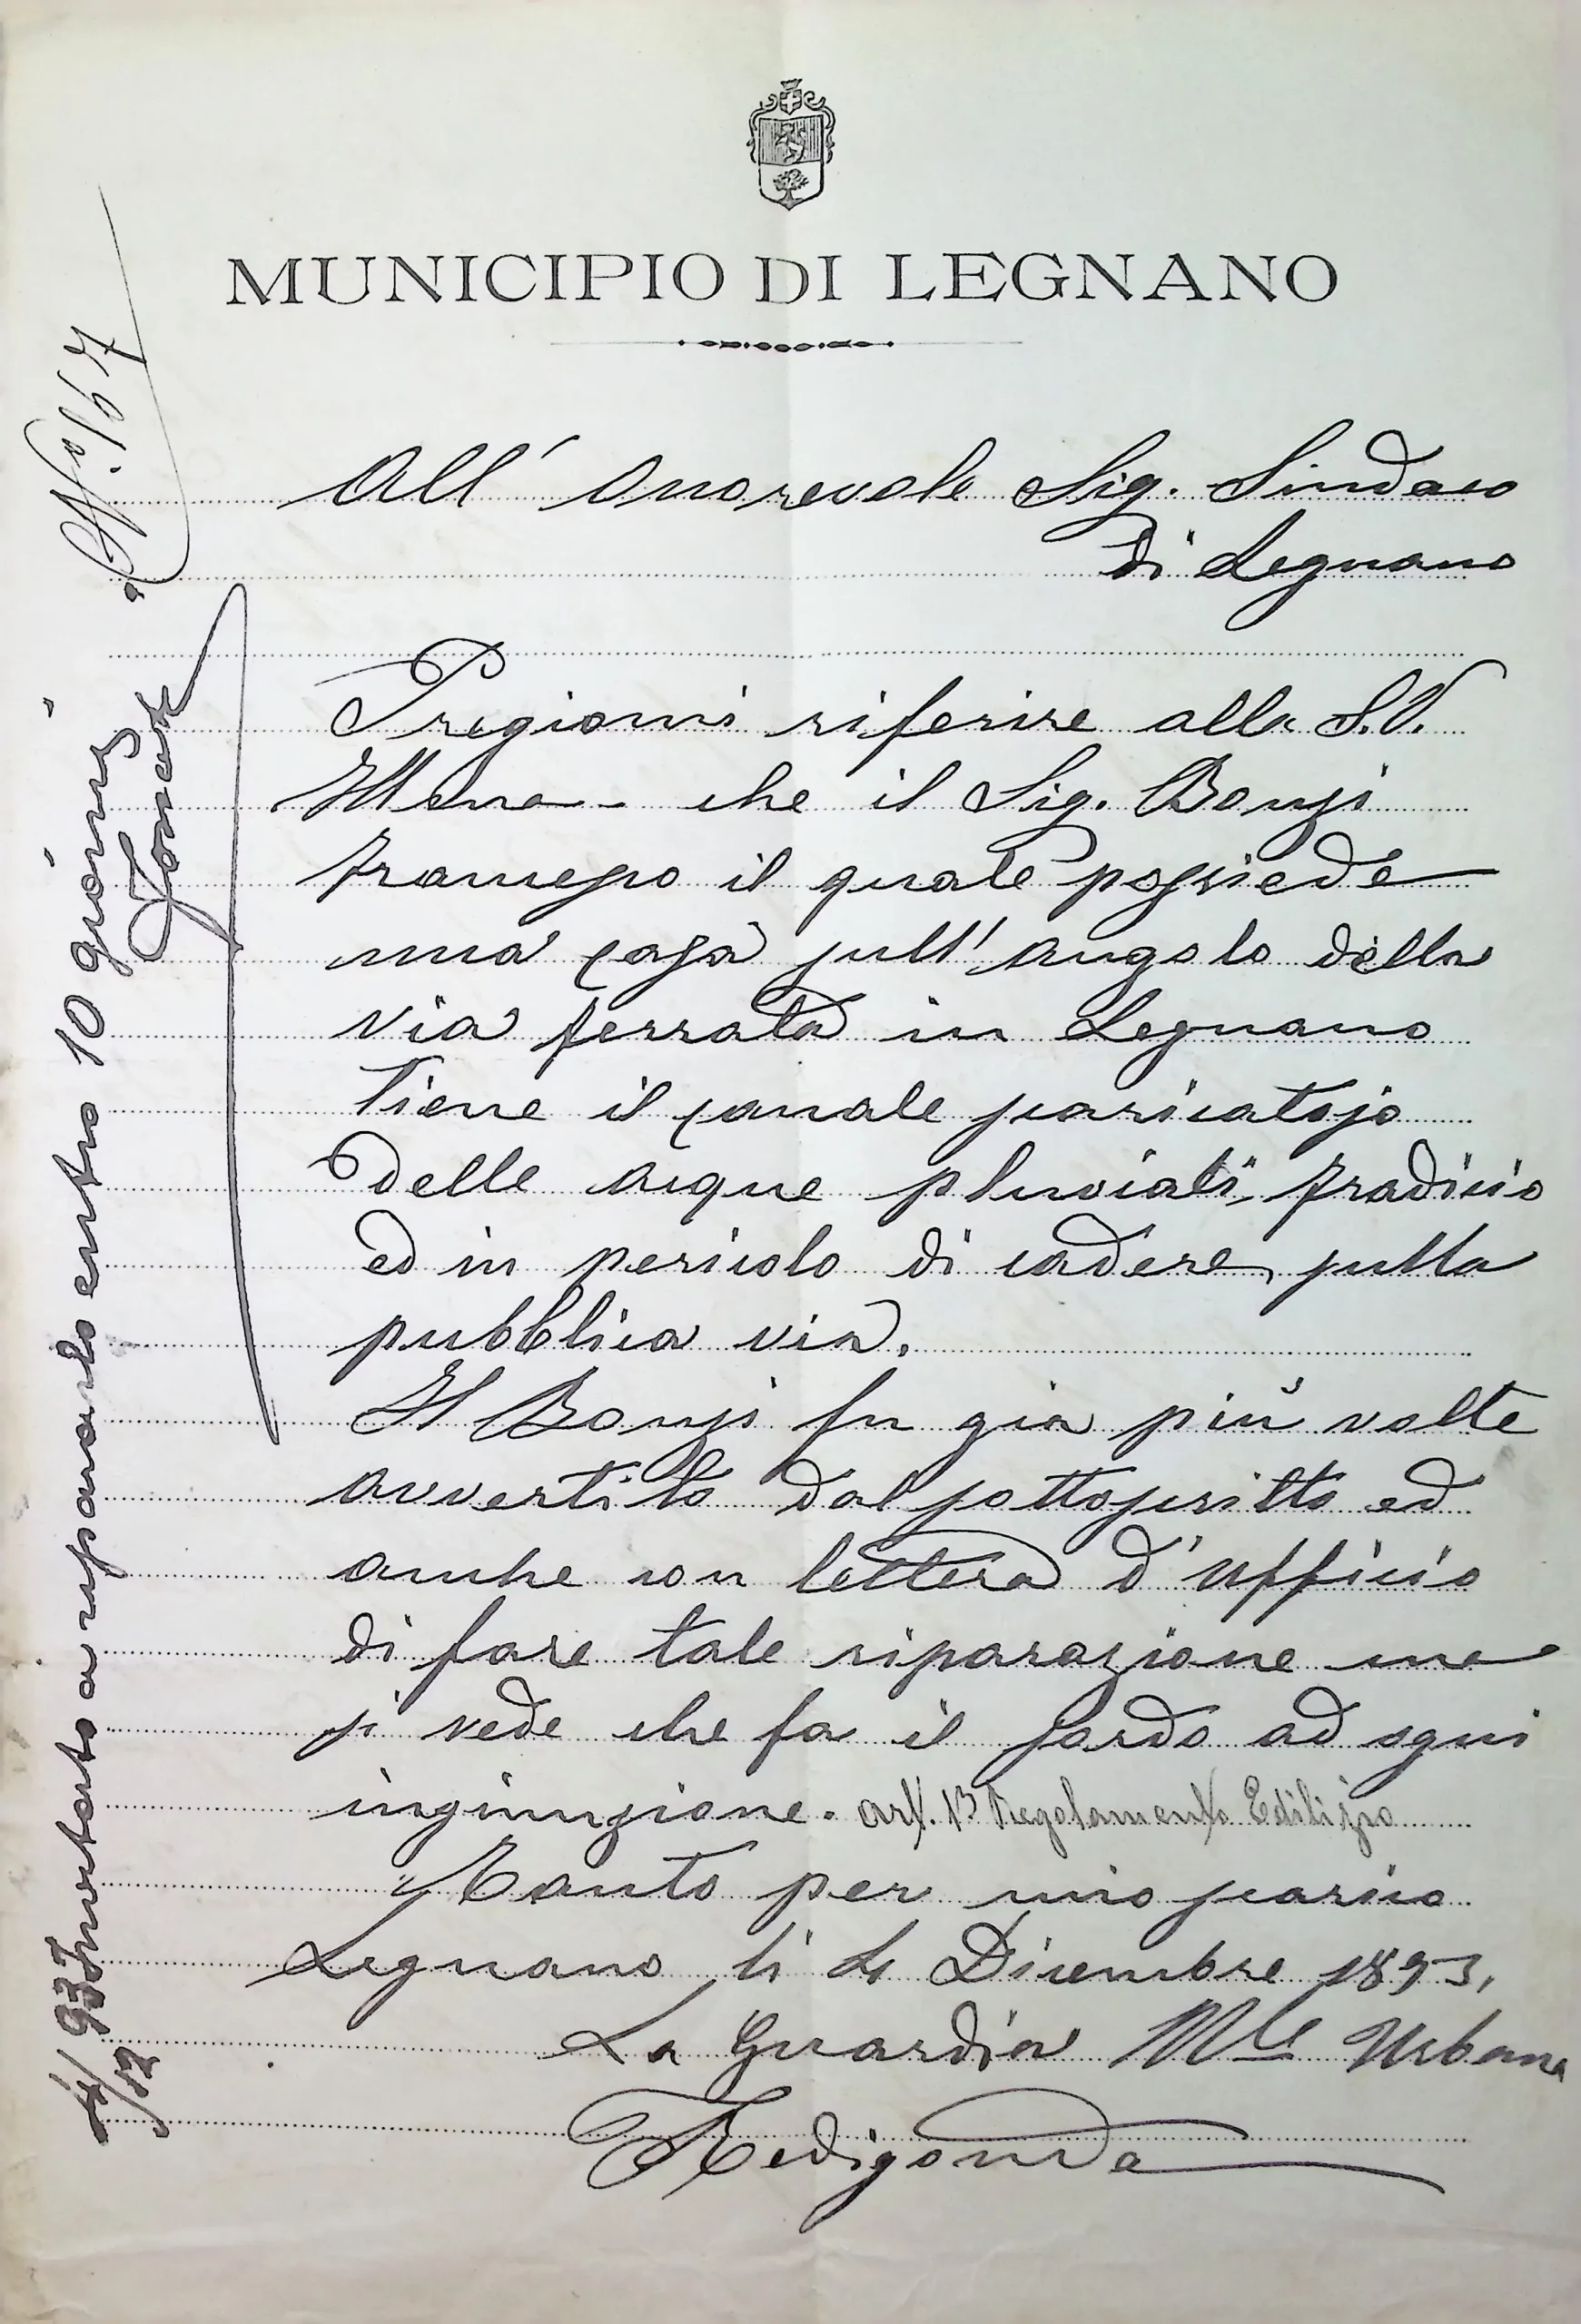 MUNICIPIO DI LEGNANO
N.º 167
All' Onorevole Sig. Sindaco
di Legnano
Pregiomi riferire alla S.V.
Illma che il Sig. Bonzi
Francesco il quale possiede
una casa sull' angolo della
via ferrata in Legnano
tiene il canale scaricatojo
delle acque pluviali, fradicio
ed in pericolo di cadere sulla
pubblica via.
Il Bonzi fu già più volte
avvertito dal sottoscritto ed
anche con lettera d'Ufficio
di fare tale riparazione ma
si vede che fa il sordo ad ogni
ingiunzione. art. 13 Regolamento Edilizio
Tanto per mio scarico
Legnano li 4 Dicembre 1893.
La Guardia Mle Urbana
Redigonda
4/12 93 Invitato a ripararlo entro 10 giorni